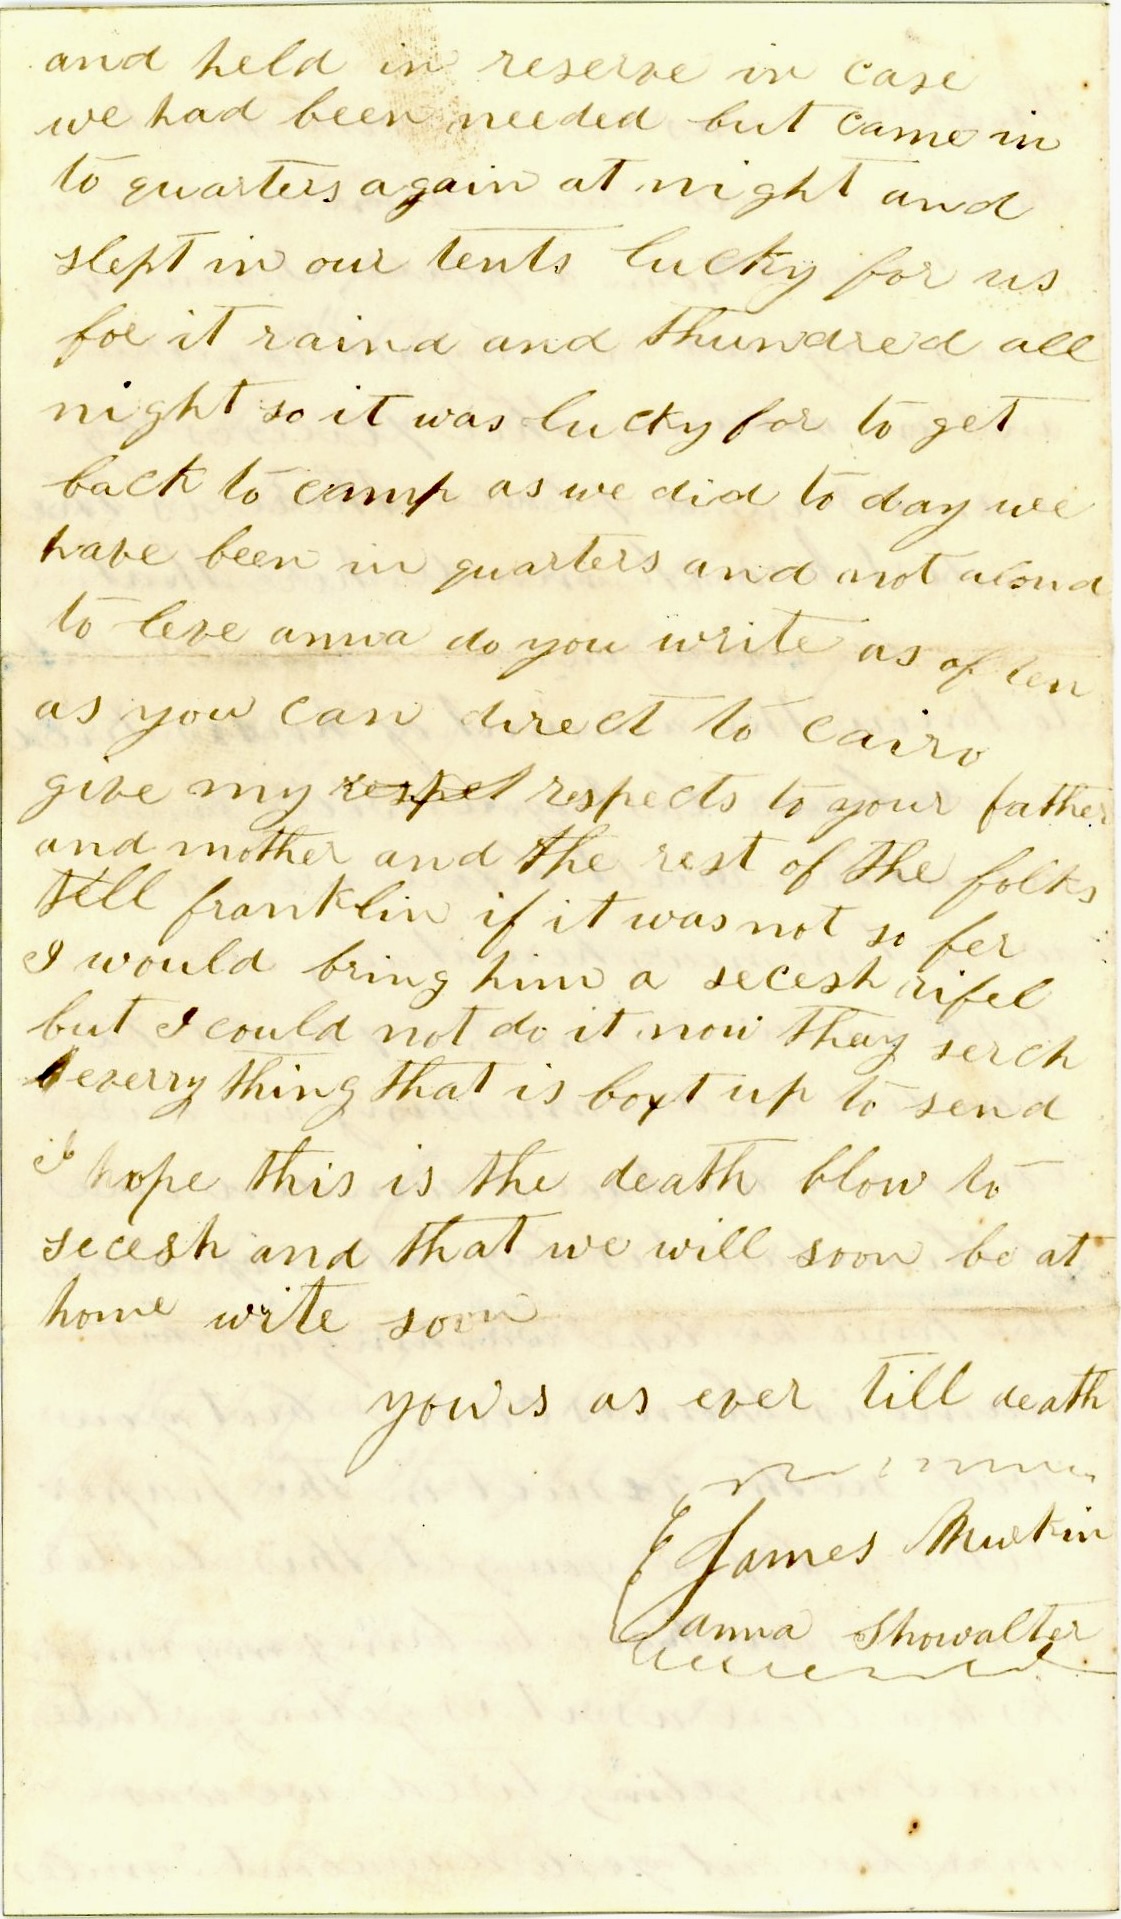 and held in reserve in case
we had been needed but came in
to quarters again at night and
slept in our tents lucky for us
for it raind and thundred all
night so it was lucky for to get
back to camp as we did to day we
have been in quarters and not aloud
to leve anna do you write as often
as you can direct to cairo
give my respect respects to your father
and mother and the rest of the folks
tell franklin if it was not so fer
I would bring him a secesh rifel
but I could not do it now thay serch
everry thing that is boxt up to send
I hope this is the death blow to
secesh and that we will soon be at
home write soon
yours as ever till death
James Murkin
anna Showalter